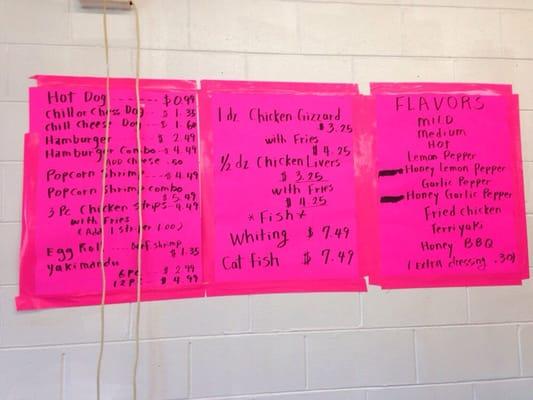 Hot Dog ---- $0.99
Chili or Chess Dog $1.35
Chili Cheese Dog $1.60
Hamburger ---- $2.49
Hamburger Combo $4.49
ADD Cheese .50
Popcorn Shrimp -- $4.49
Popcorn Shrimp Combo
$5.49
3 Pc Chicken Strips - 4.49
with Fries
(Add 1 Strip 1.00)
Egg Roll -- Beef, Shrimp
$1.35
Yakimandu
6 Pc $2.99
12 Pc $4.99
1 dz Chicken Gizzard
$3.25
with Fries
$4.25
1/2 dz Chicken Livers
$3.25
with Fries
$4.25
*Fish*
Whiting $7.49
Cat Fish $7.49
FLAVORS
MILD
Medium
Hot
Lemon Pepper
Honey Lemon Pepper
Garlic Pepper
Honey Garlic Pepper
Fried Chicken
Terriyaki
Honey BBQ
(Extra dressing .30)